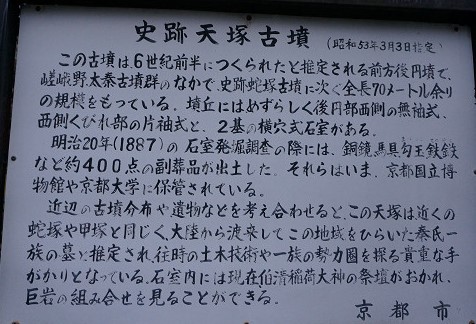 史跡天塚古墳 (昭和53年3月3日指定)
この古墳は、6世紀前半につくられたと推定される前方後円墳で、
嵯峨野、太秦古墳群のなかで、史跡蛇塚古墳に次ぐ全長70メートル余り
の規模をもっている。墳丘にはめずらしく後円部西側の無袖式、
西側くびれ部の片袖式と、2基の横穴式石室がある。
明治20年(1887)の石室発掘調査の際には、銅鏡、馬具、勾玉、鉄鏃
など約400点の副葬品が出土した。それらはいま、京都国立博
物館や京都大学に保管されている。
近辺の古墳分布や遺物などを考え合わせると、この天塚は近くの
蛇塚や甲塚と同じく、大陸から渡来してこの地域をひらいた秦氏一
族の墓と推定され、往時の土木技術や一族の勢力圏を探る貴重な手
がかりとなっている。石室内には現在伯清稲荷大神の祭壇がおかれ、
巨岩の組み合せを見ることができる。
京都市